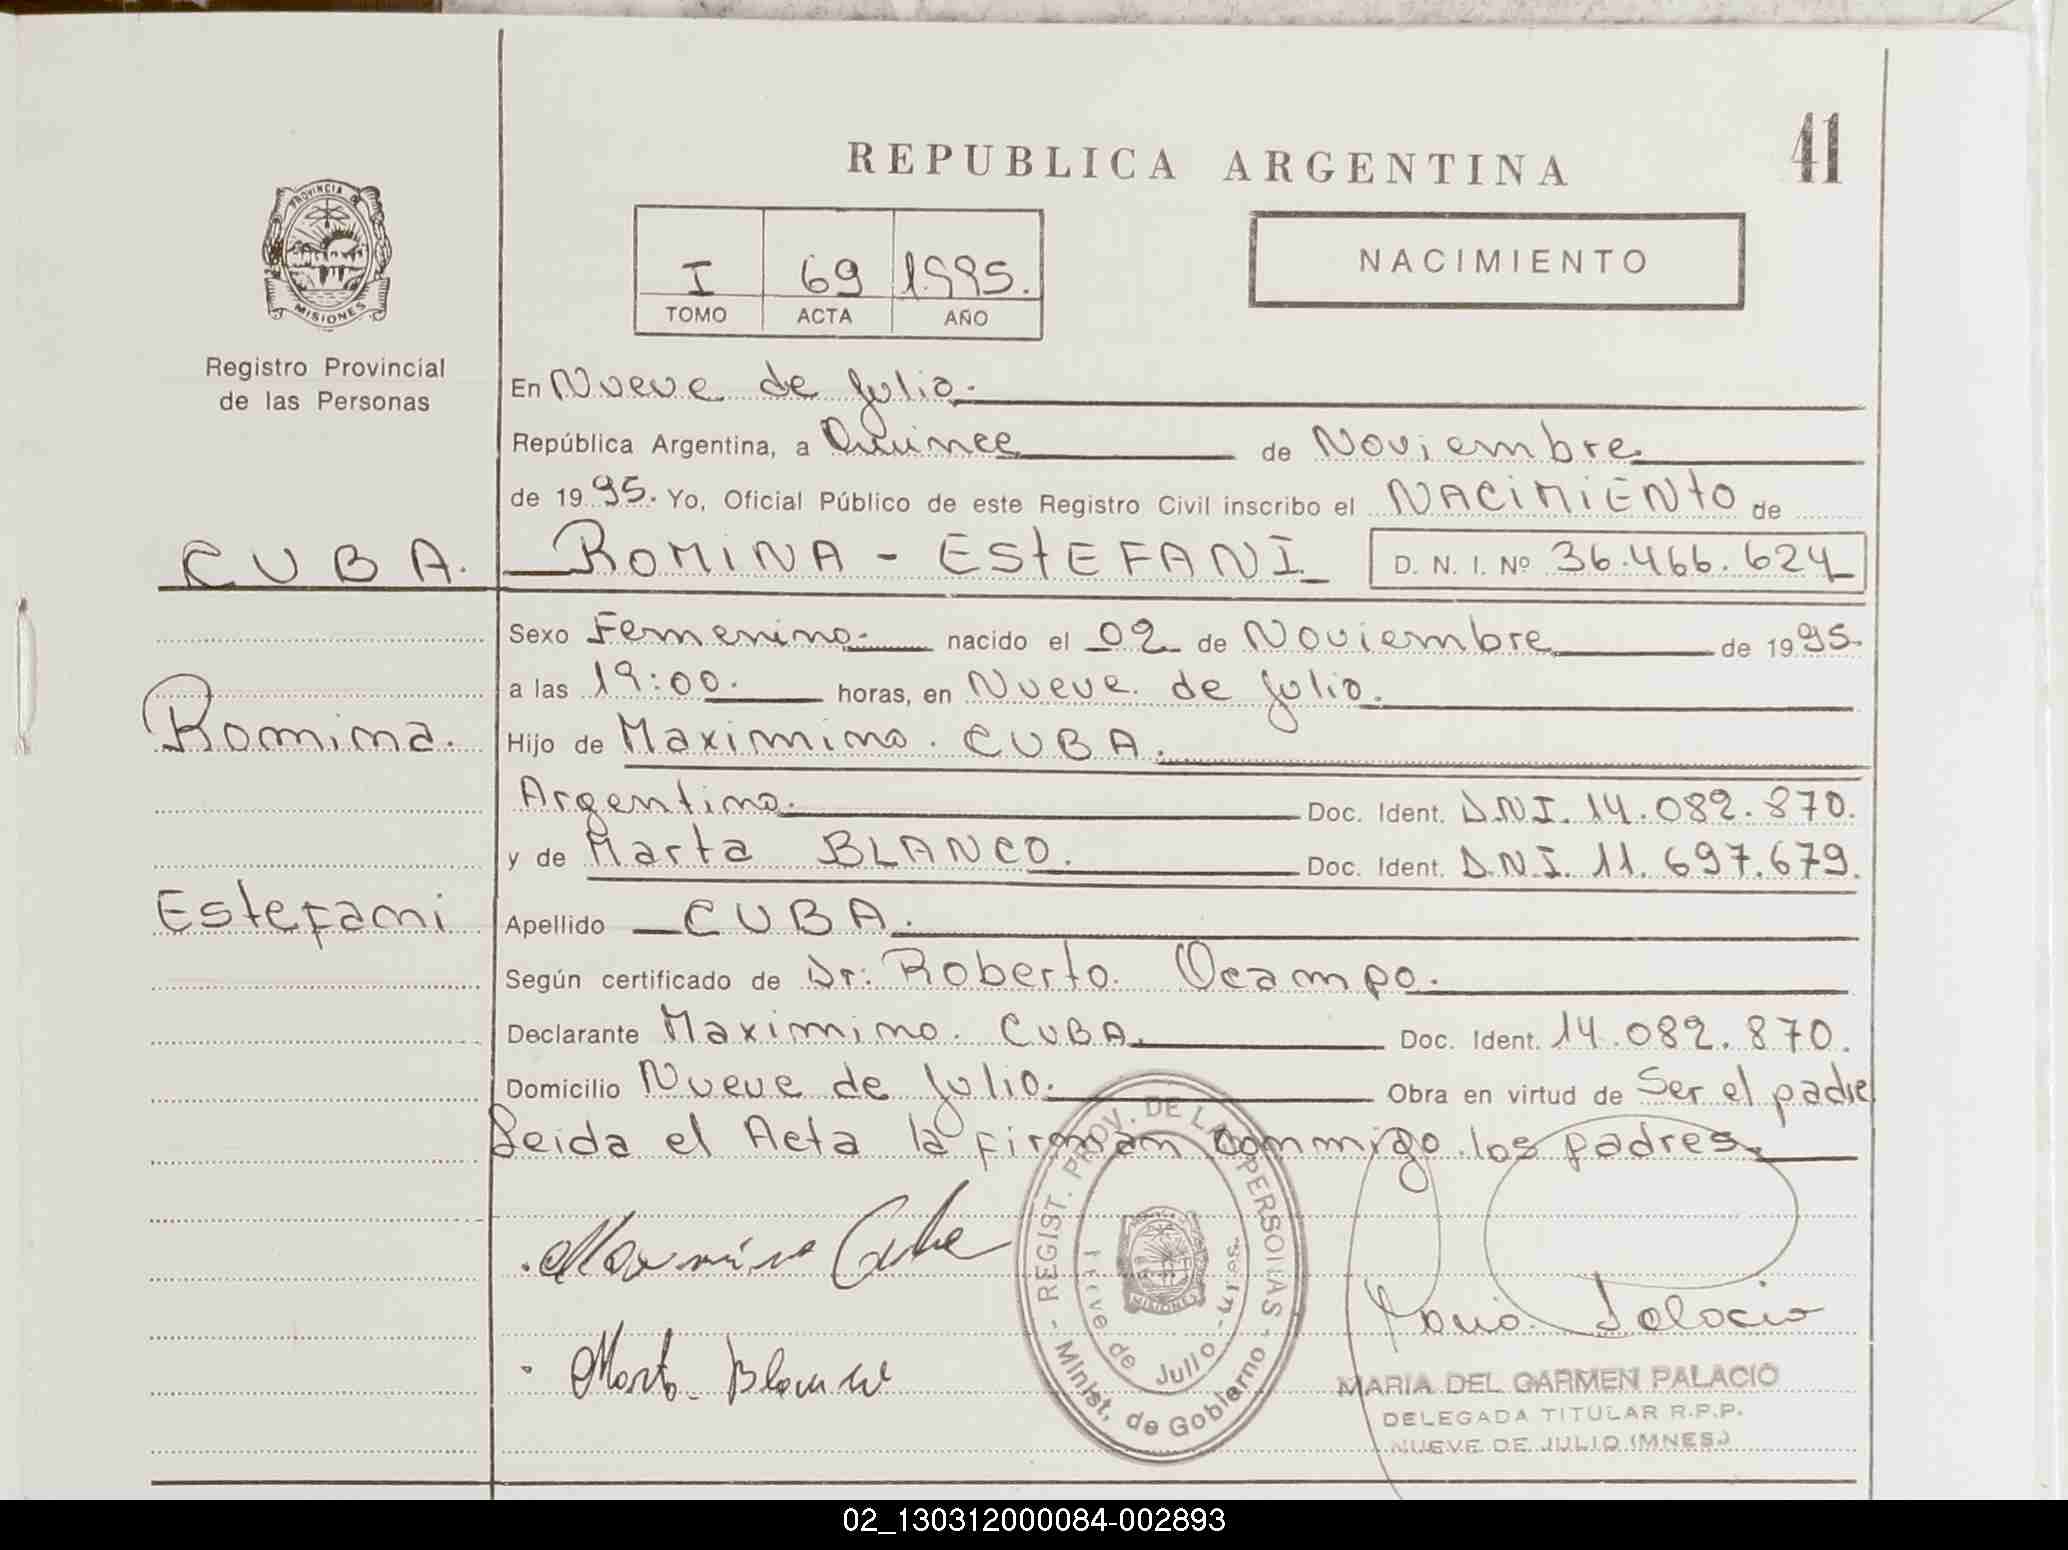 REPUBLICA ARGENTINA
41
PROVINCIA
MISIONES
Registro Provincial
de las Personas
I 69 1995.
TOMO ACTA AÑO
NACIMIENTO
En Nueve de Julio.
República Argentina, a Quince de Noviembre
de 1995. Yo, Oficial Público de este Registro Civil inscribo el NACIMIENTO de
CUBA. ROMINA - ESTEFANI D. N. I. Nº 36.466.624
Sexo Femenino. nacido el 02 de Noviembre de 1995.
a las 19:00. horas, en Nueve de Julio.
Romina. Hijo de Maximino. CUBA.
Argentino. Doc. Ident. D.N.I. 14.082.870.
y de Marta BLANCO. Doc. Ident. D.N.I. 11.697.679.
Estefani Apellido CUBA.
Según certificado de Dr: Roberto. Ocampo.
Declarante Maximino. CUBA. Doc. Ident. 14.082.870.
Domicilio Nueve de Julio. Obra en virtud de Ser el padre
Leida el Acta la firman conmigo los padres.
REGIST. PROV. DE LAS PERSONAS - Minist. de Gobierno -
Nueve de Julio - Mnes.
MISIONES
Maximino Cuba
Marta Blanco
Maria Palacio
MARIA DEL CARMEN PALACIO
DELEGADA TITULAR R.P.P.
NUEVE DE JULIO (MNES.)
02_130312000084-002893